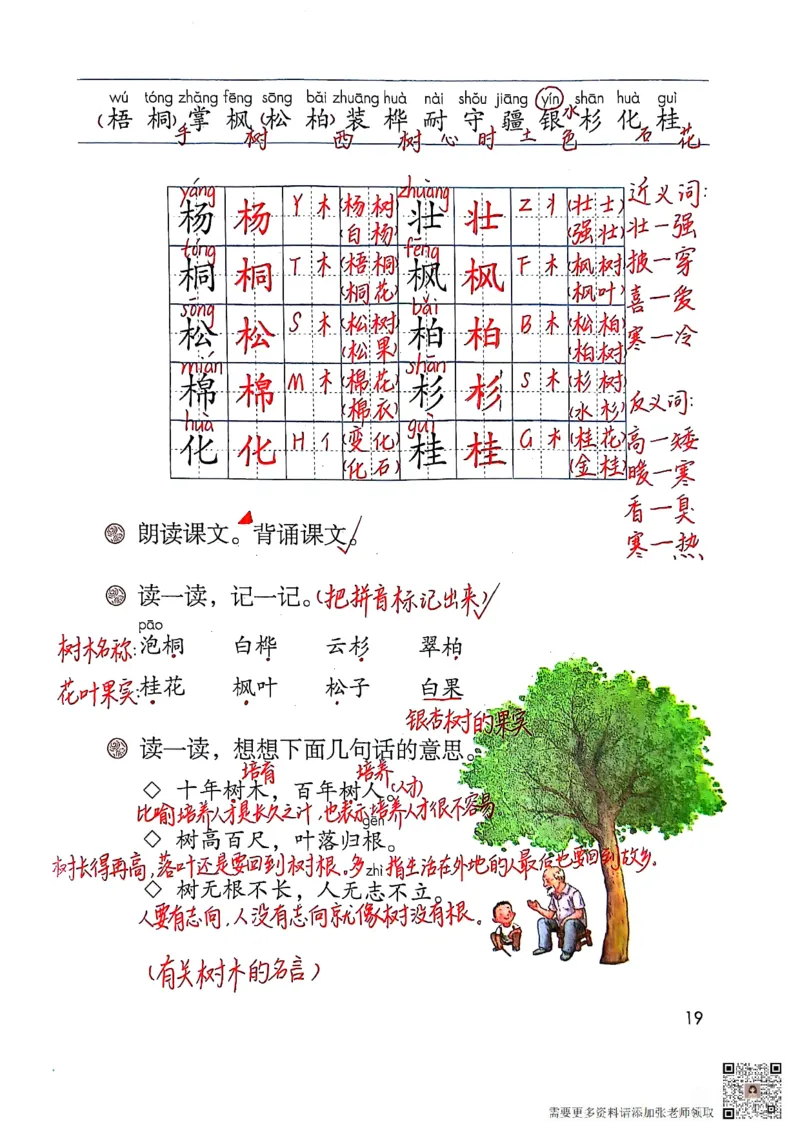 wú tóng zhǎng fēng sōng bǎi zhuāng huà nài shǒu jiāng yín shān huà guì
(梧 桐) 掌 枫 (松 柏) 装 桦 耐 守 疆 银 杉 化 桂
手 树 西 树 心 时 土 水 色 石 花
yáng zhuàng
杨 杨 Y 木 (杨树) 壮 壮 Z 丬 (壮士)
(白杨) (强壮)
tóng fēng
桐 桐 T 木 (梧桐) 枫 枫 F 木 (枫树)
(桐花) (枫叶)
sōng bǎi
松 松 S 木 (松树) 柏 柏 B 木 (松柏)
(松果) (柏树)
mián shān
棉 棉 M 木 (棉花) 杉 杉 S 木 (杉树)
(棉衣) (水杉)
huà guì
化 化 H 亻 (变化) 桂 桂 G 木 (桂花)
(化石) (金桂)
近义词:
壮一强
披一穿
喜一爱
寒一冷
反义词:
高一矮
暖一寒
香一臭
寒一热
朗读课文。背诵课文。
读一读，记一记。(把拼音标记出来)
pāo
树木名称:泡桐 白桦 云杉 翠柏
花叶果实:桂花 枫叶 松子 白果
银杏树的果实
读一读，想想下面几句话的意思。
培育 培养
◇ 十年树木，百年树人。(人才)
比喻培养人才是长久之计,也表示培养人才很不容易
gēn
◇ 树高百尺，叶落归根。
树长得再高,落叶还是要回到树根。多指生活在外地的人最后也要回到故乡.
zhì
◇ 树无根不长，人无志不立。
人要有志向,人没有志向就像树没有根。
(有关树木的名言)
19
需要更多资料请添加张老师领取